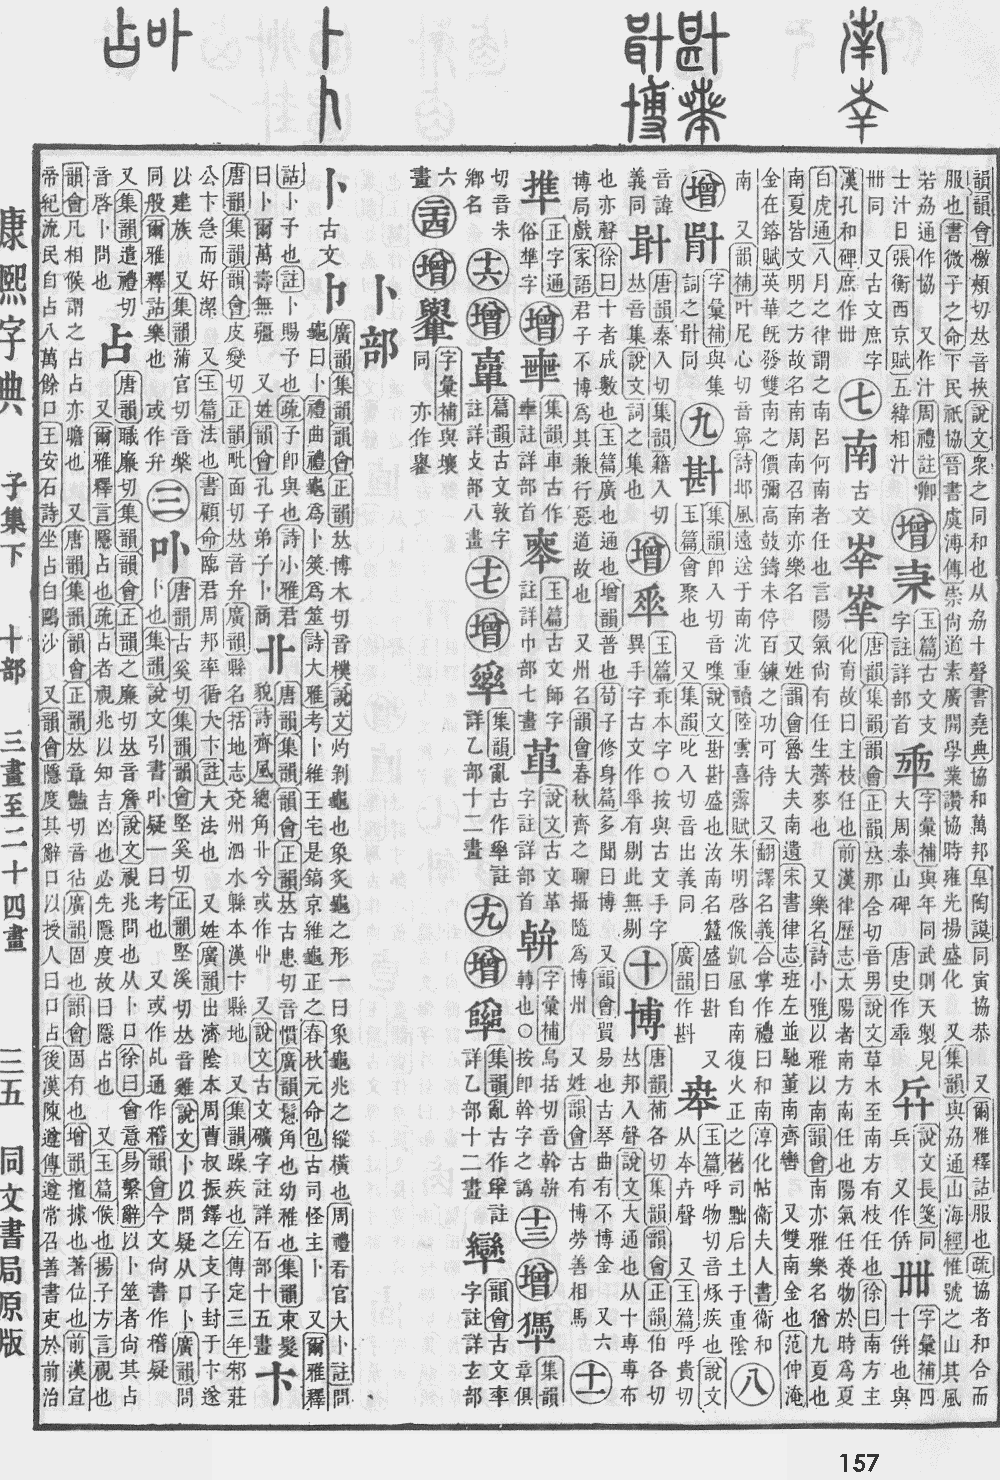 韻韻會檄頰切𠀤音挾說文衆之同和也从劦十聲書堯典協和萬邦臯陶謨同寅協恭 又爾雅釋詁服也疏協者和合而
服也書微子之命下民祇協晉書虞溥傳崇尚道素廣開學業讚協時雍光揚盛化 又集韻與劦通山海經惟號之山其風
若劦通作協 又作汁周禮註卿士汁日張衡西京賦五緯相汁 增 玉篇古文支字註詳部首 字彙補與年同武則天製見大周泰山碑 唐史作𠦚 說文長箋同兵 又作㑟 卌 字彙補四十倂也與
卌同 又古文庶字漢孔和碑庶作卌 七 南 古文 唐韻集韻韻會正韻𠀤那含切音男說文草木至南方有枝任也徐曰南方主化育故曰主枝任也前漢律歷志太陽者南方南任也陽氣任養物於時爲夏
白虎通八月之律謂之南呂何南者任也言陽氣尙有任生薺麥也 又樂名詩小雅以雅以南韻會南亦雅樂名猶九夏也
南夏皆文明之方故名南周南召南亦樂名 又姓韻會魯大夫南遺宋書律志班左並馳董南齊轡 又雙南金也范仲淹
金在鎔賦英華旣發雙南之價彌高鼓鑄未停百鍊之功可待 又翻譯名義合掌作禮曰和南淳化帖衞夫人書衞和
南 又韻補叶尼心切音寧詩邶風遠送于南沈重讀陸雲喜霽賦朱明啓候凱風自南復火正之舊司黜后土于重陰 八
增 字彙補與集同 詞之計 九 斟 集韻卽入切音喋說文斟斟盛也汝南名蠶盛曰斟 玉篇會聚也 又集韻叱入切音出義同 廣韻作斟 又 玉篇呼物切音烼疾也說文从夲卉聲 又玉篇呼貴切
音諱義同 唐韻秦入切集韻籍入切𠀤音集說文詞之集也 增 玉篇乖本字○按與古文手字異手字古文作𠂿有剔此無剔 十 博 唐韻補各切集韻韻會正韻伯各切𠀤邦入聲說文大通也从十專專布
也亦聲徐曰十者成數也玉篇廣也通也增韻普也荀子修身篇多聞曰博 又韻會貿易也古琴曲有不博金 六
博局戲家語君子不博爲其兼行惡道故也 又州名韻會春秋齊之聊攝隨爲博州 又姓韻會古有博勞善相馬 十一
俗準字 正字通 增 集韻車古作𠦴註詳部首 玉篇古文師字註詳巾部七畫 說文古文革字註詳部首 字彙補烏括切音斡斡轉也○按卽斡字之譌 十三 增 集韻章俱
切音朱鄉名 十六 增 篇韻古文敦字註詳攴部八畫 十七 增 集韻亂古作註詳乙部十二畫 十九 增 集韻亂古作註詳乙部十二畫 韻會古文率字註詳玄部
六畫 二十四 增 字彙補與壤同 亦作
卜部
卜 古文 廣韻集韻韻會正韻𠀤博木切音樸說文灼剝龜也象炙龜之形一曰象龜兆之縱橫也周禮春官大卜註問龜曰卜禮曲禮龜爲卜筴爲筮詩大雅考卜維王宅是鎬京維龜正之春秋元命包古司怪主卜 又爾雅釋
詁卜子也註卜賜予也疏予卽與也詩小雅君曰卜爾萬壽無疆 又姓韻會孔子弟子卜商 卝 唐韻集韻韻會正韻𠀤古患切音慣廣韻鬊角也幼稚也集韻束髮貌詩齊風總角丱兮或作卝 又說文古文礦字註詳石部十五畫 卞
唐韻集韻韻會皮變切正韻毗面切𠀤音弁廣韻縣名括地志兗州泗水縣本漢卞縣地 又集韻躁疾也左傳定三年邾莊
公卞急而好潔 又玉篇法也書顧命臨君周邦率循大卞註大法也 又姓廣韻出濟陰本周曹叔振鐸之支子封于卞遂
以建族 又集韻蒲官切音槃同般爾雅釋詁樂也 或作弁 三 卟 唐韻古奚切集韻韻會堅奚切正韻堅溪切𠀤音雞說文卜以問疑从口卜廣韻問卜也集韻說文引書卟疑一曰考也 又或作乩通作稽韻會今文尙書作稽疑
又集韻遣禮切音啓卜問也 占 唐韻職廉切集韻韻會正韻之廉切𠀤音詹說文視兆問也从卜口徐曰會意易繫辭以卜筮者尙其占 又爾雅釋言隱占也疏占者視兆以知吉凶也必先隱度故曰隱占也 又玉篇候也揚子方言視也
韻會凡相候謂之占占亦瞻也 又唐韻集韻韻會正韻𠀤章豔切音佔廣韻固也韻會固有也增韻擅據也著位也前漢宣
帝紀流民自占八萬餘口王安石詩坐占白鷗沙 又韻會隱度其辭口以授人曰口占後漢陳遵傳遵常召善書吏於前治
康熙字典 子集下 十部 三畫至二十四畫 三五 同文書局原版
157